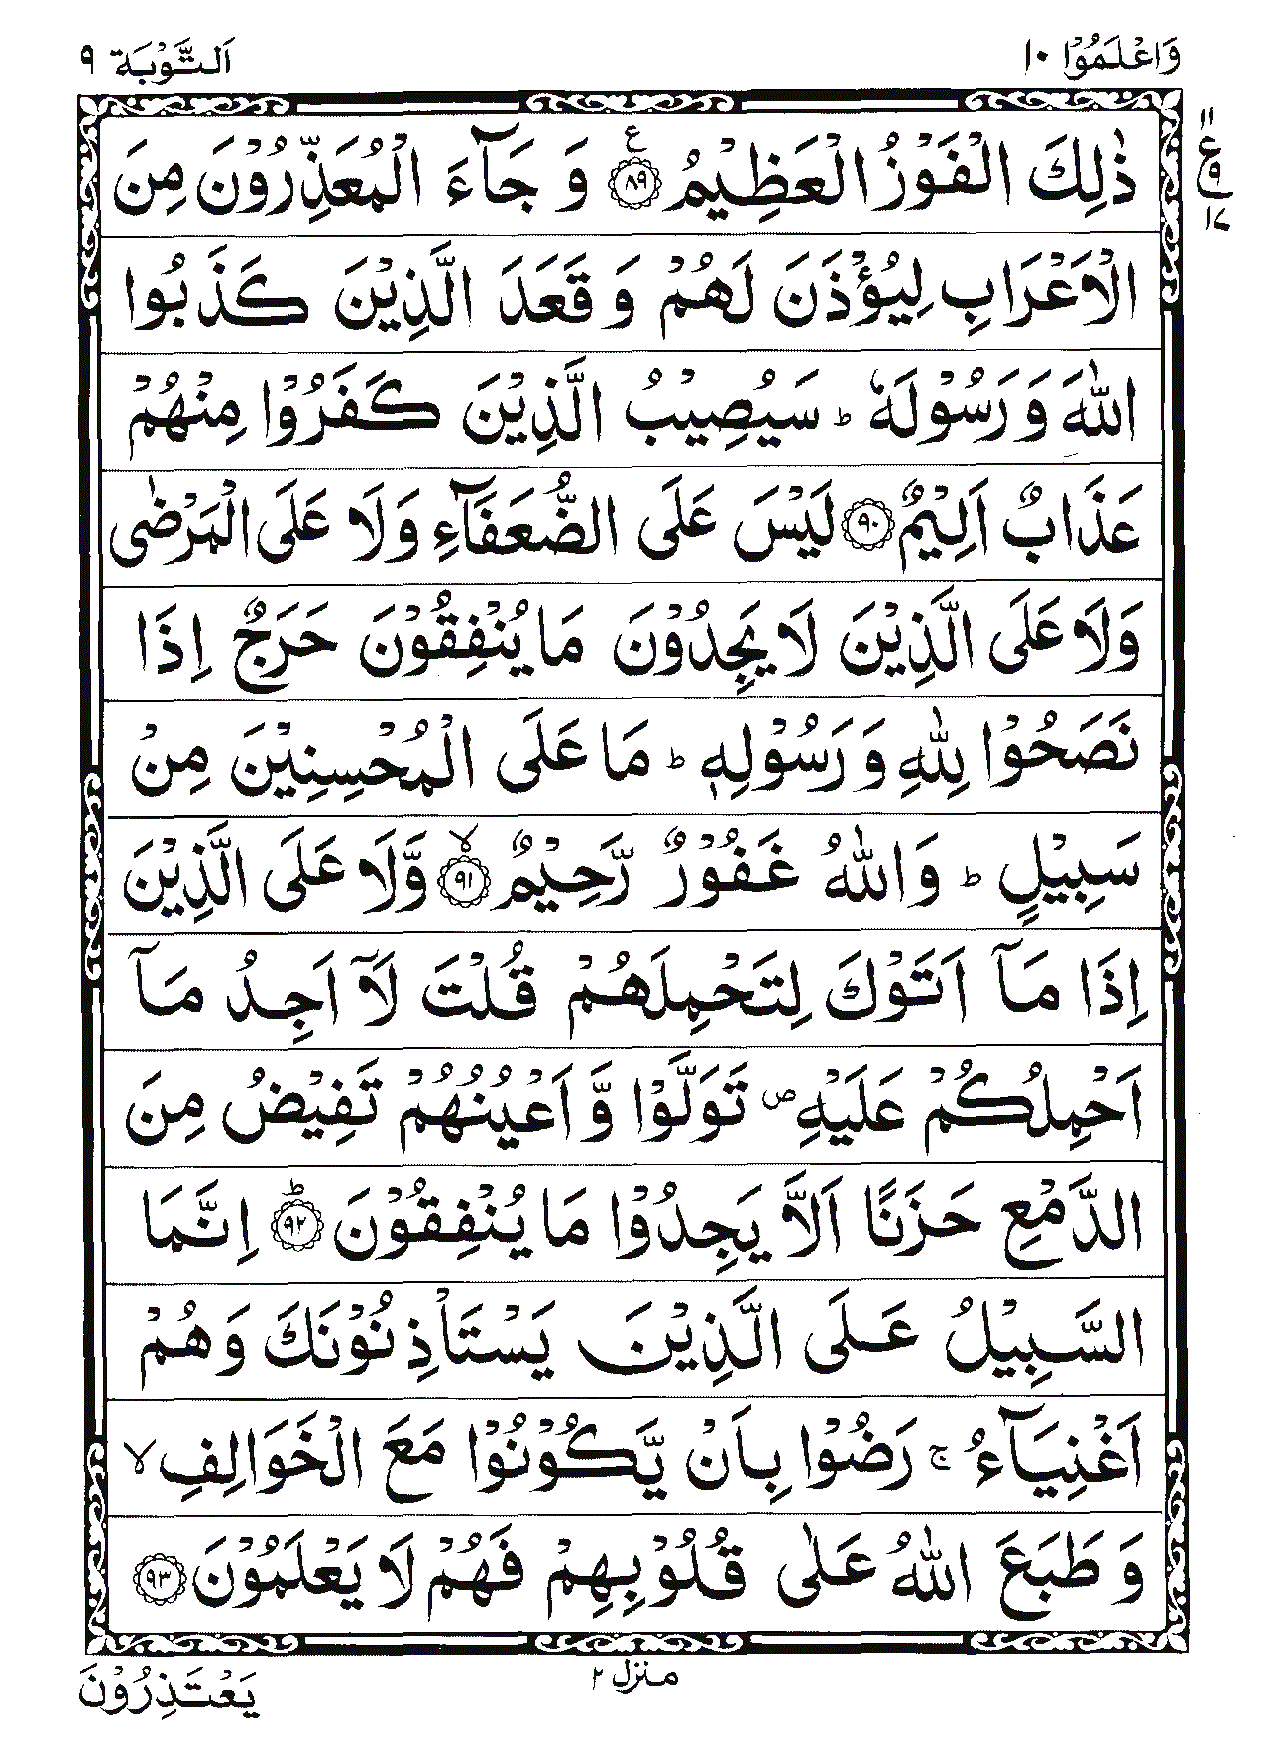 وَاعْلَمُوْۤا ١٠ اَلتَّوْبَة ٩
١١ ع ٩ ١٧
ذٰلِكَ الْفَوْزُ الْعَظِيْمُ ﴿٨٩﴾ ع وَ جَآءَ الْمُعَذِّرُوْنَ مِنَ
الْاَعْرَابِ لِيُؤْذَنَ لَهُمْ وَ قَعَدَ الَّذِيْنَ كَذَبُوا
اللّٰهَ وَ رَسُوْلَهٗ ؕ سَيُصِيْبُ الَّذِيْنَ كَفَرُوْا مِنْهُمْ
عَذَابٌ اَلِيْمٌ ﴿٩٠﴾ لَيْسَ عَلَى الضُّعَفَآءِ وَلَا عَلَى الْمَرْضٰى
وَلَا عَلَى الَّذِيْنَ لَا يَجِدُوْنَ مَا يُنْفِقُوْنَ حَرَجٌ اِذَا
نَصَحُوْا لِلّٰهِ وَ رَسُوْلِهٖ ؕ مَا عَلَى الْمُحْسِنِيْنَ مِنْ
سَبِيْلٍ ؕ وَاللّٰهُ غَفُوْرٌ رَّحِيْمٌ ﴿٩١﴾ ۙ وَّلَا عَلَى الَّذِيْنَ
اِذَا مَاۤ اَتَوْكَ لِتَحْمِلَهُمْ قُلْتَ لَاۤ اَجِدُ مَاۤ
اَحْمِلُكُمْ عَلَيْهِ ۪ تَوَلَّوْا وَّ اَعْيُنُهُمْ تَفِيْضُ مِنَ
الدَّمْعِ حَزَنًا اَلَّا يَجِدُوْا مَا يُنْفِقُوْنَ ﴿٩٢﴾ ؕ اِنَّمَا
السَّبِيْلُ عَلَى الَّذِيْنَ يَسْتَاْذِنُوْنَكَ وَهُمْ
اَغْنِيَآءُ ۚ رَضُوْا بِاَنْ يَّكُوْنُوْا مَعَ الْخَوَالِفِ ۙ
وَ طَبَعَ اللّٰهُ عَلٰى قُلُوْبِهِمْ فَهُمْ لَا يَعْلَمُوْنَ ﴿٩٣﴾
منزل ٢
يَعْتَذِرُوْنَ